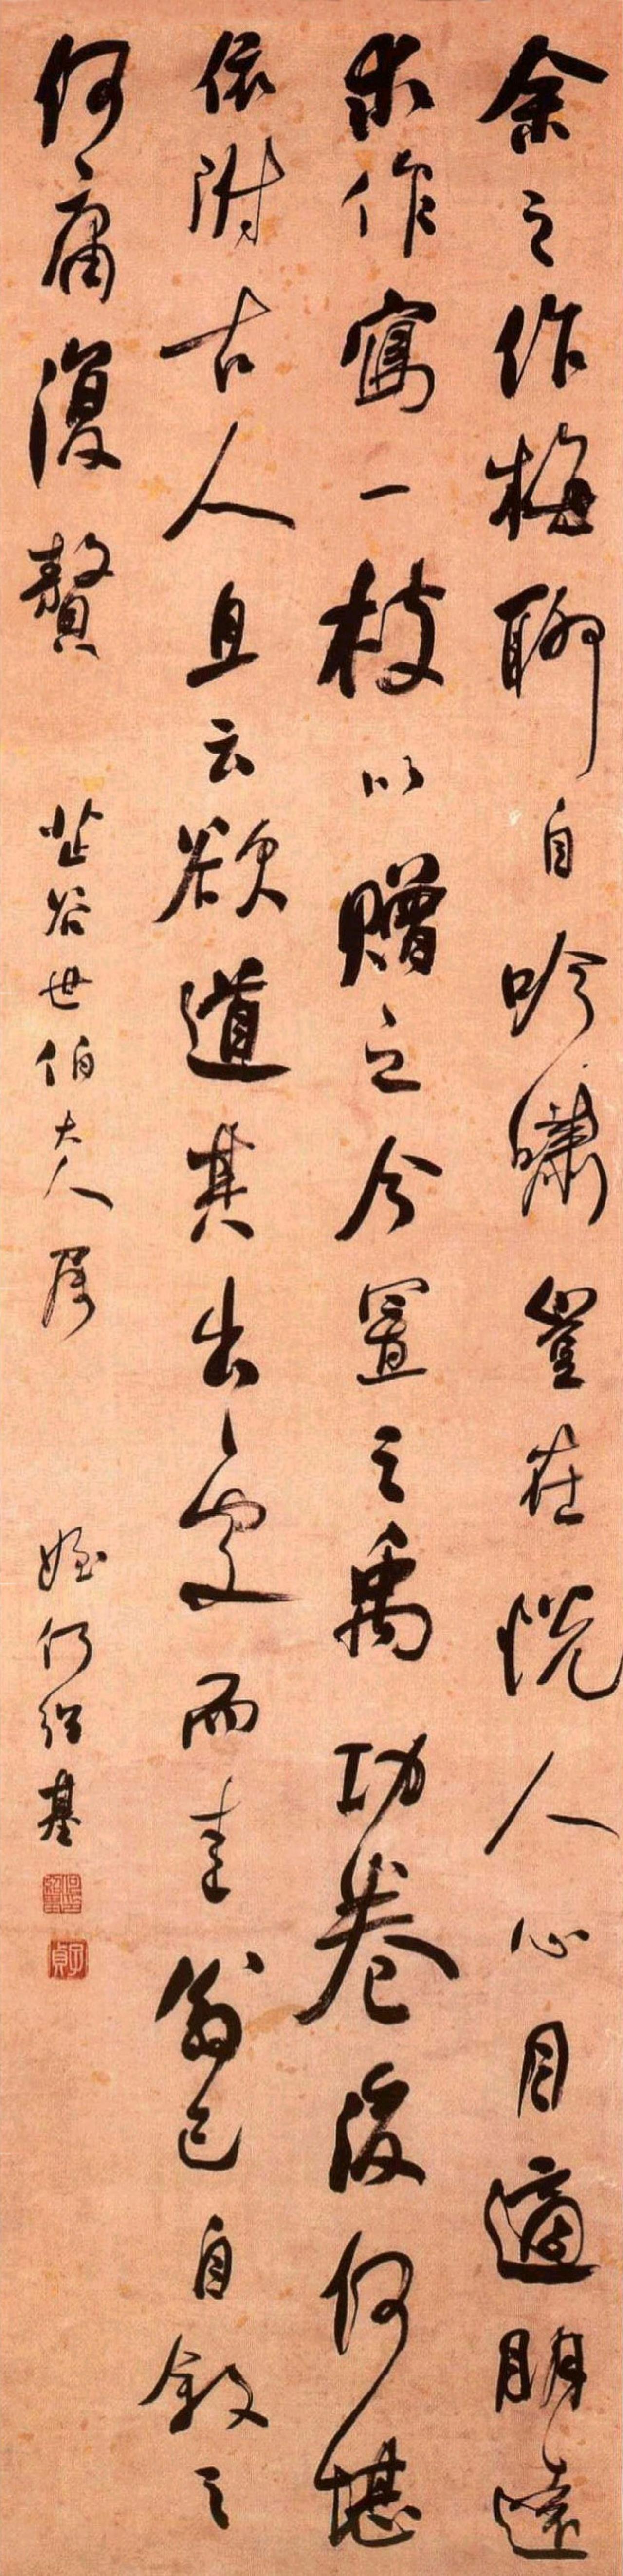 余之作梅聊自吟嘯豈在悦人心目適明遠
求作寫一枝以贈之今置之禹功卷後何堪
依附古人且云欲道其出處而逹翁已自叙之
何庸復贅
芷谷世伯大人屬
姪何紹基